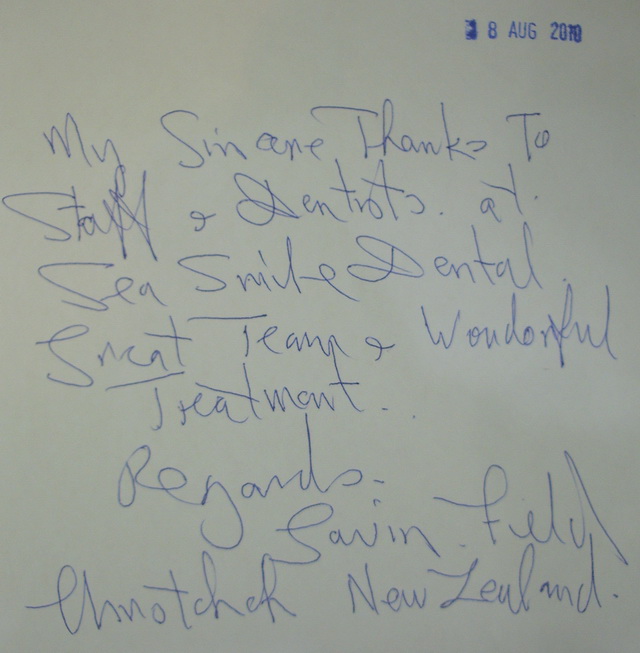 8 AUG 2010
My Sincere Thanks To
Staff & Dentists. at.
Sea Smile Dental.
Great Team & Wonderful
Treatment..
Regards.
Gavin Field
Christchch New Zealand.